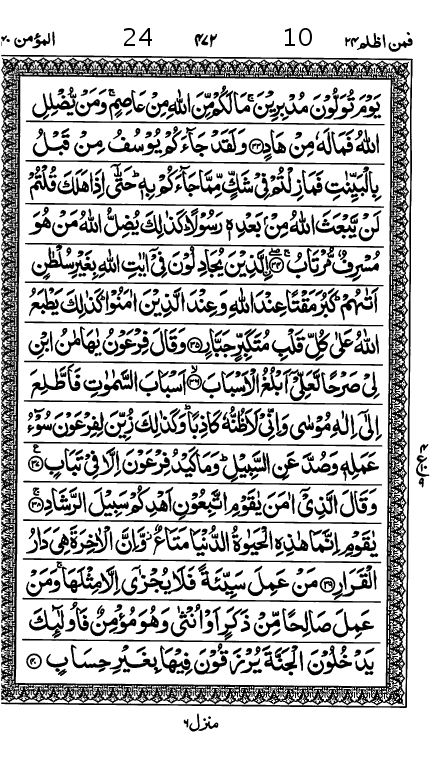 فمن اظلم ۲۴ 10 ۴۷۲ 24 المؤمن ۴۰
يَوْمَ تُوَلُّوْنَ مُدْبِرِيْنَ ۚ مَا لَكُمْ مِّنَ اللّٰهِ مِنْ عَاصِمٍ ۚ وَمَنْ يُّضْلِلِ
اللّٰهُ فَمَا لَهٗ مِنْ هَادٍ ﴿۳۳﴾ وَلَقَدْ جَآءَكُمْ يُوْسُفُ مِنْ قَبْلُ
بِالْبَيِّنٰتِ فَمَا زِلْتُمْ فِيْ شَكٍّ مِّمَّا جَآءَكُمْ بِهٖ ؕ حَتّٰۤى اِذَا هَلَكَ قُلْتُمْ
لَنْ يَّبْعَثَ اللّٰهُ مِنْۢ بَعْدِهٖ رَسُوْلًا ؕ كَذٰلِكَ يُضِلُّ اللّٰهُ مَنْ هُوَ
مُسْرِفٌ مُّرْتَابُ ﴿۳۴﴾ ۨالَّذِيْنَ يُجَادِلُوْنَ فِيْۤ اٰيٰتِ اللّٰهِ بِغَيْرِ سُلْطٰنٍ
اَتٰىهُمْ ؕ كَبُرَ مَقْتًا عِنْدَ اللّٰهِ وَعِنْدَ الَّذِيْنَ اٰمَنُوْا ؕ كَذٰلِكَ يَطْبَعُ
اللّٰهُ عَلٰى كُلِّ قَلْبِ مُتَكَبِّرٍ جَبَّارٍ ﴿۳۵﴾ وَقَالَ فِرْعَوْنُ يٰهَامٰنُ ابْنِ
لِيْ صَرْحًا لَّعَلِّيْۤ اَبْلُغُ الْاَسْبَابَ ﴿۳۶﴾ اَسْبَابَ السَّمٰوٰتِ فَاَطَّلِعَ
اِلٰۤى اِلٰهِ مُوْسٰى وَاِنِّيْ لَاَظُنُّهٗ كَاذِبًا ؕ وَكَذٰلِكَ زُيِّنَ لِفِرْعَوْنَ سُوْٓءُ
عَمَلِهٖ وَصُدَّ عَنِ السَّبِيْلِ ؕ وَمَا كَيْدُ فِرْعَوْنَ اِلَّا فِيْ تَبَابٍ ﴿۳۷﴾
وَقَالَ الَّذِيْۤ اٰمَنَ يٰقَوْمِ اتَّبِعُوْنِ اَهْدِكُمْ سَبِيْلَ الرَّشَادِ ﴿۳۸﴾
يٰقَوْمِ اِنَّمَا هٰذِهِ الْحَيٰوةُ الدُّنْيَا مَتَاعٌ ؗ وَّاِنَّ الْاٰخِرَةَ هِيَ دَارُ
الْقَرَارِ ﴿۳۹﴾ مَنْ عَمِلَ سَيِّئَةً فَلَا يُجْزٰۤى اِلَّا مِثْلَهَا ۚ وَمَنْ
عَمِلَ صَالِحًا مِّنْ ذَكَرٍ اَوْ اُنْثٰى وَهُوَ مُؤْمِنٌ فَاُولٰٓئِكَ
يَدْخُلُوْنَ الْجَنَّةَ يُرْزَقُوْنَ فِيْهَا بِغَيْرِ حِسَابٍ ﴿۴۰﴾
منزل ۶